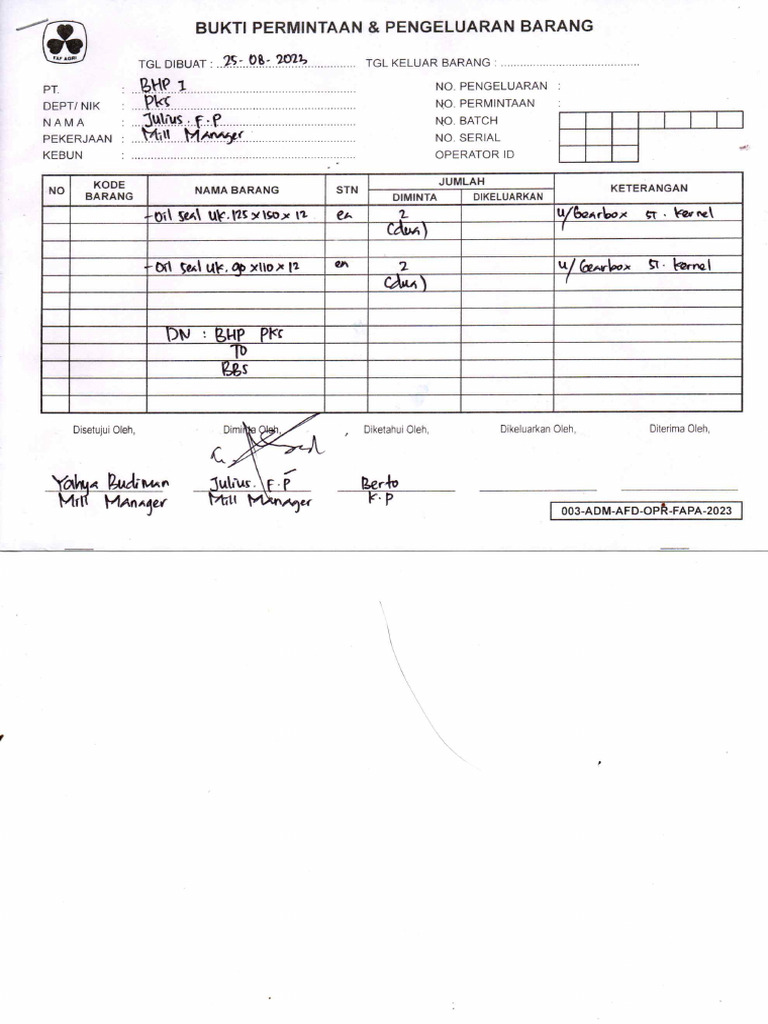 BUKTI PERMINTAAN & PENGELUARAN BARANG
FAP AGRI
TGL DIBUAT : 25-08-2023 TGL KELUAR BARANG :
PT. : BHP I NO. PENGELUARAN :
DEPT/ NIK : PKS NO. PERMINTAAN :
N A M A : Julius. F. P NO. BATCH
PEKERJAAN : Mill Manager NO. SERIAL
KEBUN : OPERATOR ID
NO KODE BARANG NAMA BARANG STN JUMLAH KETERANGAN
DIMINTA DIKELUARKAN
- Oil Seal Uk. 125 x 150 x 12 ea 2 u/ Gearbox ST. Kernel
(dua)
- Oil Seal Uk. 90 x 110 x 12 ea 2 u/ Gearbox ST. Kernel
(dua)
DN : BHP PKS
TO
BBS
Disetujui Oleh, Diminta Oleh, Diketahui Oleh, Dikeluarkan Oleh, Diterima Oleh,
Yahya Budiman Julius. F. P Berto
Mill Manager Mill Manager K.P
003-ADM-AFD-OPR-FAPA-2023